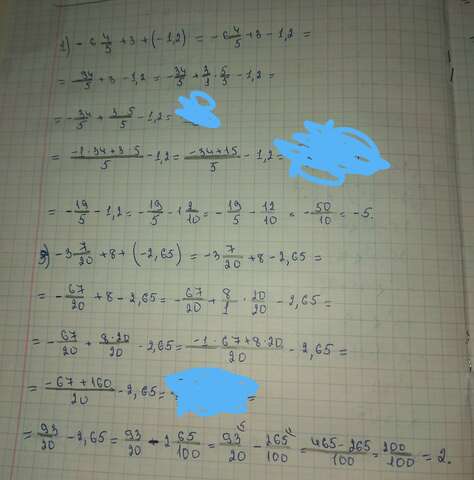 1) -6 4/5 + 3 + (-1,2) = -6 4/5 + 3 - 1,2 =
= -34/5 + 3 - 1,2 = -34/5 + 3/1 · 5/5 - 1,2 =
= -34/5 + 3·5/5 - 1,2 =
= -1·34+3·5/5 - 1,2 = -34+15/5 - 1,2 =
= -19/5 - 1,2 = -19/5 - 1 2/10 = -19/5 - 12/10 = -50/10 = -5.
3) -3 7/20 + 8 + (-2,65) = -3 7/20 + 8 - 2,65 =
= -67/20 + 8 - 2,65 = -67/20 + 8/1 · 20/20 - 2,65 =
= -67/20 + 8·20/20 - 2,65 = -1·67+8·20/20 - 2,65 =
= -67+160/20 - 2,65 = =
= 93/20 - 2,65 = 93/20 - 2 65/100 = 93/20 - 265/100 = 465-265/100 = 200/100 = 2.